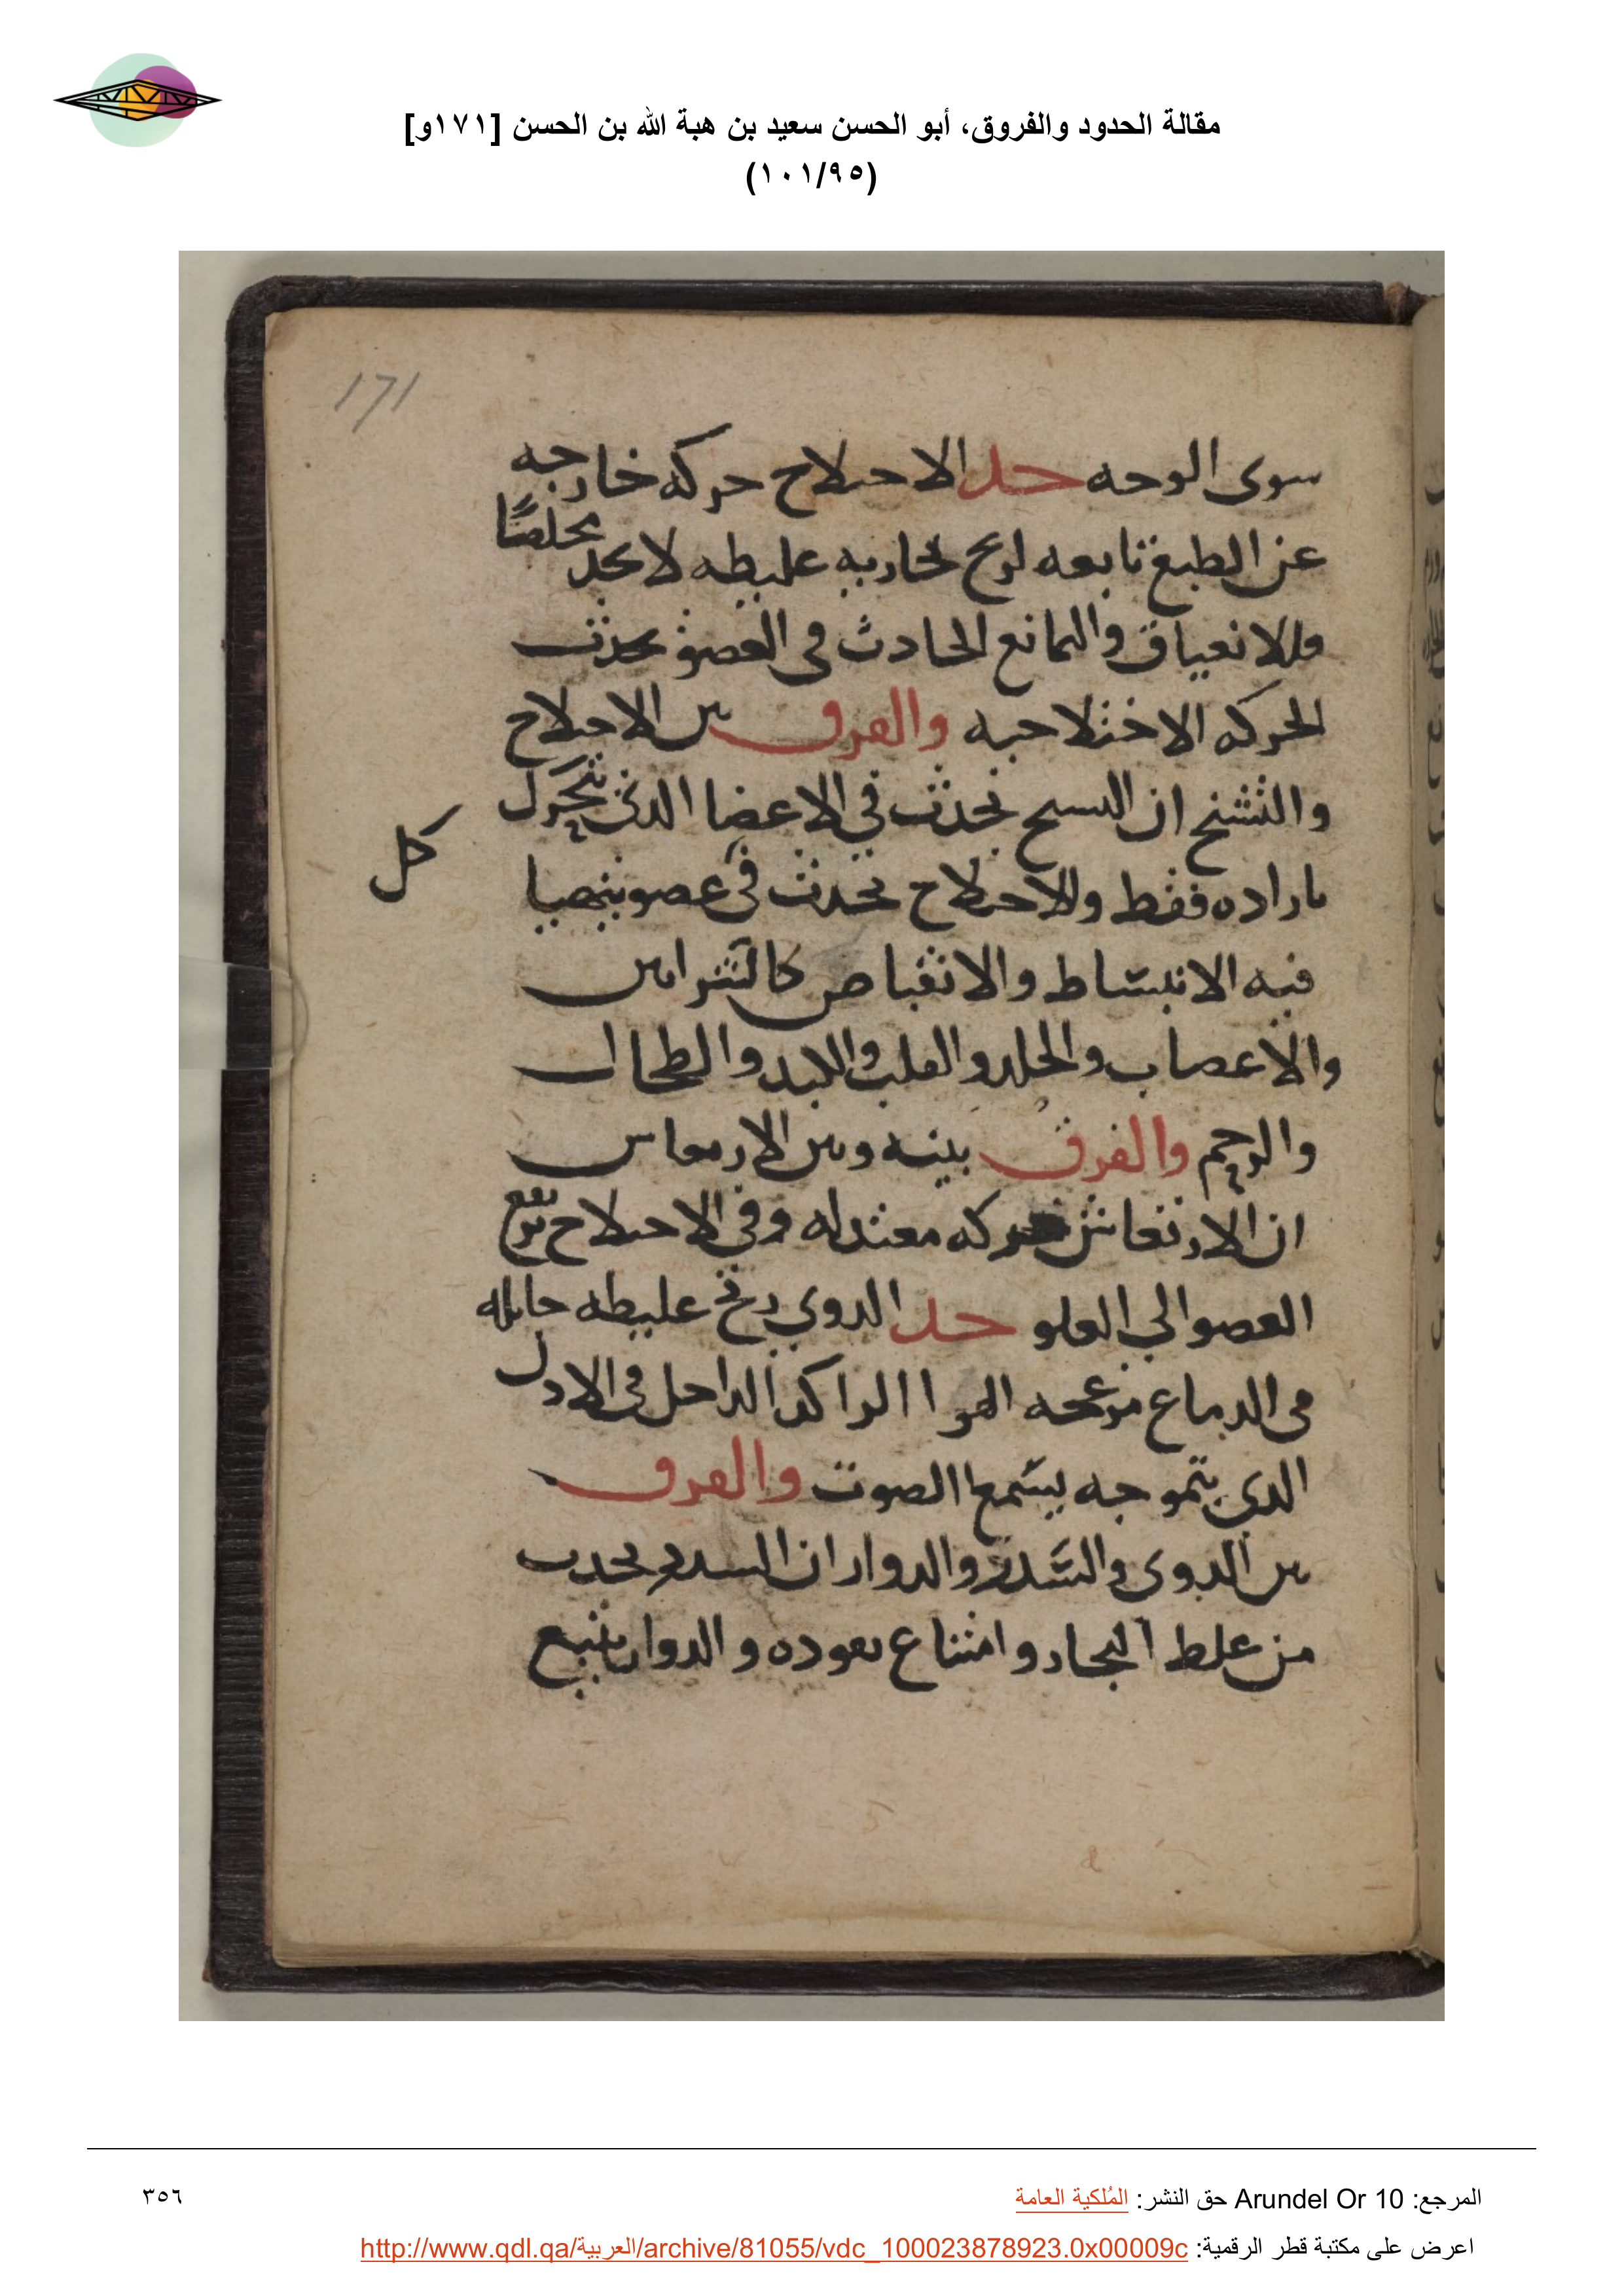 مقالة الحدود والفروق، أبو الحسن سعيد بن هبة الله بن الحسن [١٧١و]
(١٠١/٩٥)
171
سوى الوحه حد الاحتلاح حركه خارجه
عن الطبع تابعه لريح بخاريه غليظه لا تجد مخلصًا
فللانعياق والتمانع الحادث في العضو تحدث
الحركه الاختلاجيه والفرق بين الاختلاج
والتشنج ان التشنج يحدث في الاعضا الذي تتحرك
باراده فقط والاختلاج يحدث في عضو يتهيا
كل
فيه الانبساط والانقباض كالشرايين
والاعصاب والجلد والقلب والكبد والطحال
والرحم والفرق بينه وبين الارتعاش
ان الارتعاش حركه معتدله وفي الاختلاج يرتفع
العضو الي العلو حد الدوي ريح غليظه حاصله
في الدماغ مزعجه الهوا الراكد الداخل في الاذن
الذي بتموجه يسمع الصوت والفرق
بين الدوي والسدر والدوار ان السدر يحدث
من غلظ البخار وامتناع نفوده والدوار يتبع
المرجع: Arundel Or 10 حق النشر: المُلكية العامة
٣٥٦
اعرض على مكتبة قطر الرقمية: http://www.qdl.qa/العربية/archive/81055/vdc_100023878923.0x00009c